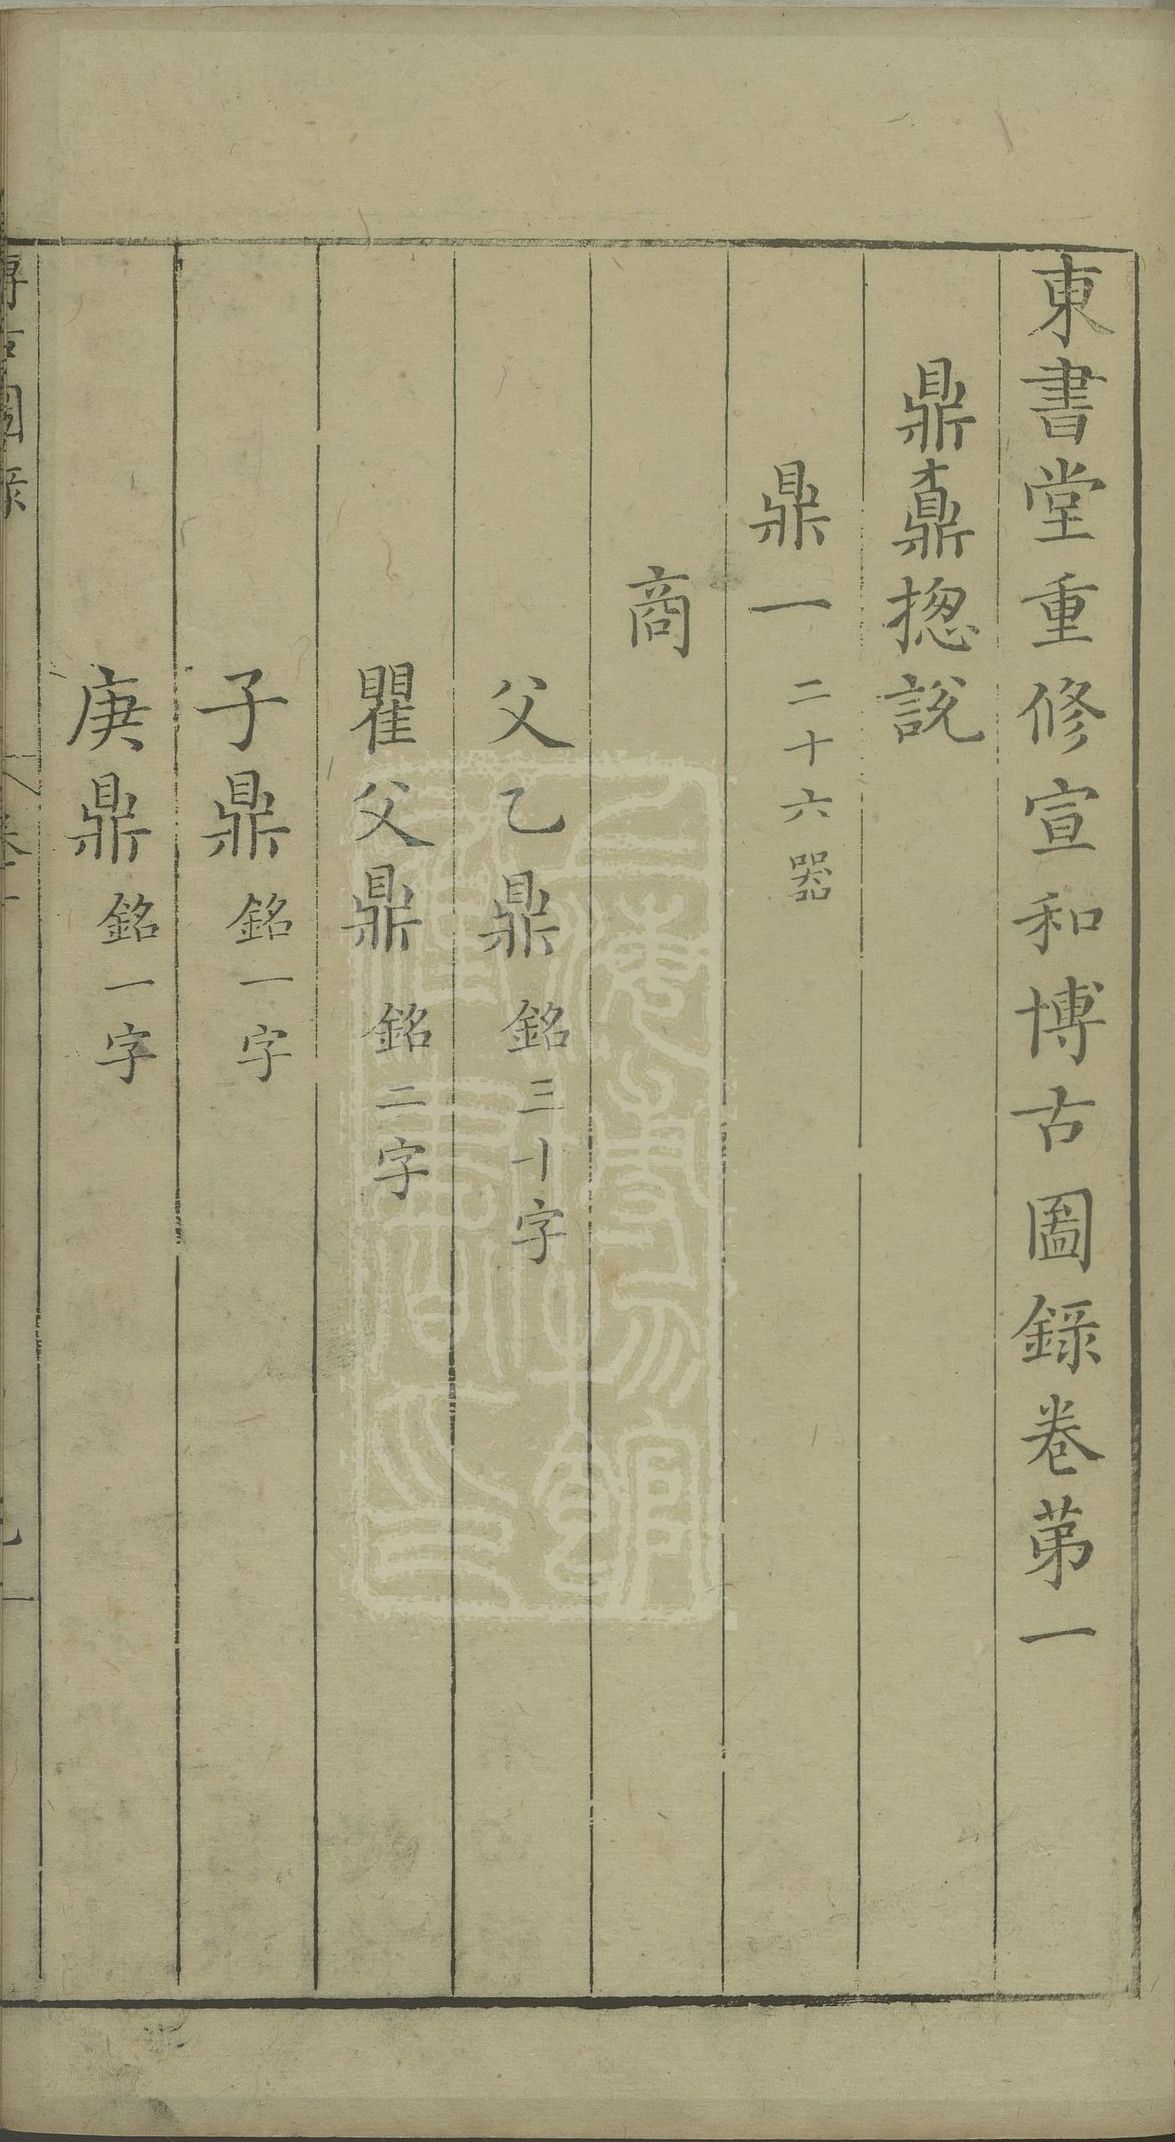 東書堂重修宣和博古圖錄卷第一
鼎鼒揔說
鼎一 二十六器
商
父乙鼎 銘三十字
瞿父鼎 銘二字
子鼎 銘一字
庚鼎 銘一字